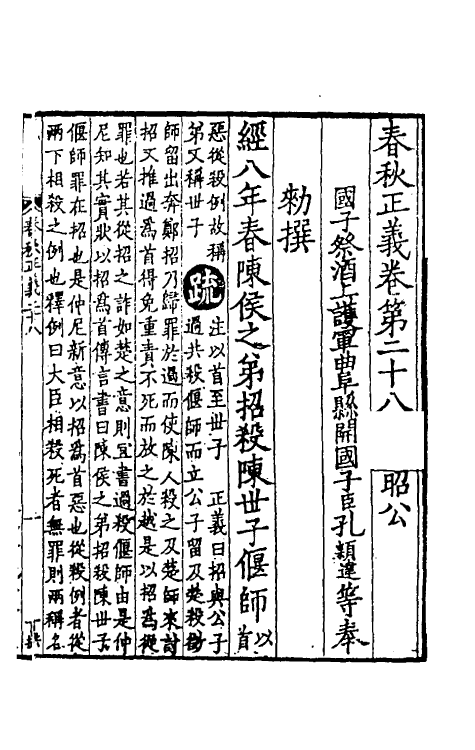 春秋正義卷第二十八 昭公
國子祭酒上護軍曲阜縣開國子臣孔穎達等奉
勑撰
經八年春陳侯之弟招殺陳世子偃師以首
惡從殺例故稱弟又稱世子 疏 注以首至世子 正義曰招與公子過共殺偃師而立公子留及楚殺
師留出奔鄭招乃歸罪於過而使陳人殺之及楚師來討
招又推過爲首得免重責不死而放之於越是以招爲從
罪也若其從招之詐如楚之意則宜書過殺偃師由是仲
尼知其實狀以招爲首傳言書曰陳侯之弟招殺陳世子
偃師罪在招也是仲尼新意以招爲首惡也從殺例者從
兩下相殺之例也釋例曰大臣相殺死者無罪則兩稱名
春秋正義二十八
一